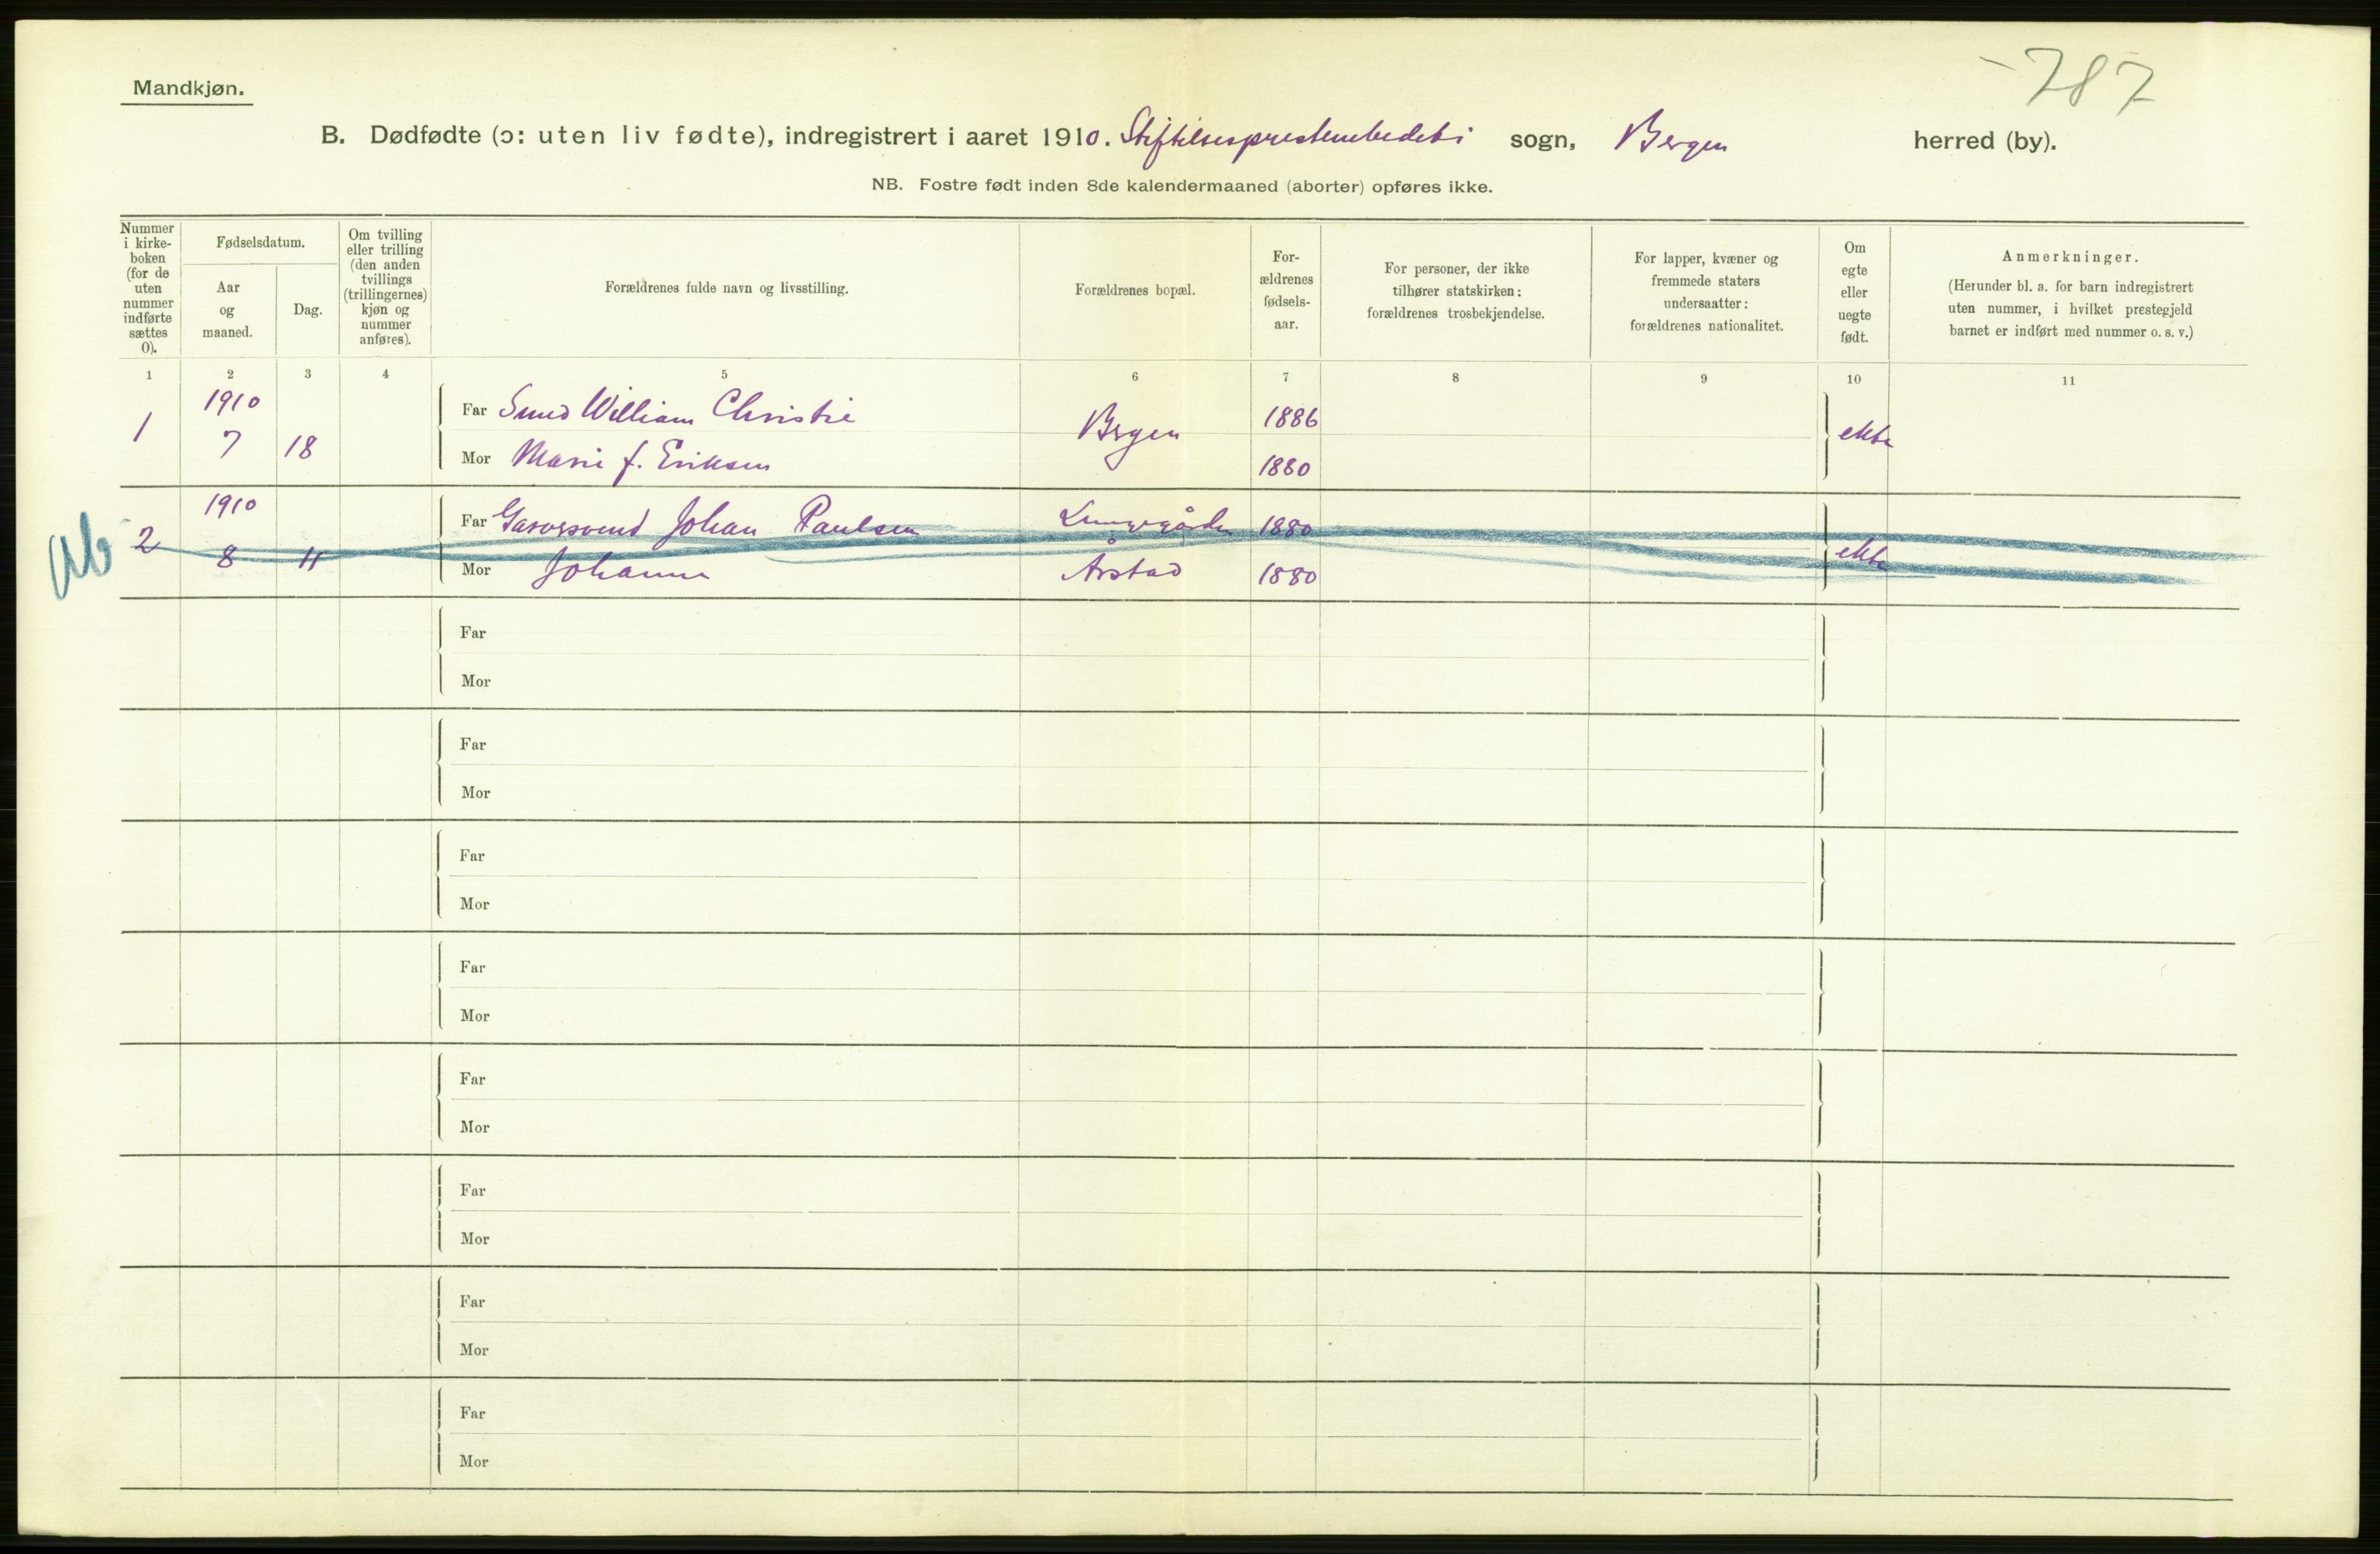 787
Mandkjøn.
B. Dødfødte (ɔ: uten liv fødte), indregistrert i aaret 1910. Stiftelsesprestembedet i sogn, Bergen herred (by).
NB. Fostre født inden 8de kalendermaaned (aborter) opføres ikke.
Nummer
i kirke-
boken
(for de
uten
nummer
indførte
sættes
0).
Fødselsdatum.
Aar
og
maaned.
Dag.
Om tvilling
eller trilling
(den anden
tvillings
(trillingernes)
kjøn og
nummer
anføres).
Forældrenes fulde navn og livsstilling.
Forældrenes bopæl.
For-
ældrenes
fødsels-
aar.
For personer, der ikke
tilhører statskirken:
forældrenes trosbekjendelse.
For lapper, kvæner og
fremmede staters
undersaatter:
forældrenes nationalitet.
Om
egte
eller
uegte
født.
Anmerkninger.
(Herunder bl. a. for barn indregistrert
uten nummer, i hvilket prestegjeld
barnet er indført med nummer o. s. v.)
1 2 3 4 5 6 7 8 9 10 11
1 1910 7 18
Far Smed William Christie Bergen 1886 ekte
Mor Marie f. Eriksen 1880
2 1910 8 11
Far Garversvend Johan Paulsen Lungegården 1880 ekte
Mor Johanne Årstad 1880
Far
Mor
Far
Mor
Far
Mor
Far
Mor
Far
Mor
Far
Mor
Far
Mor
Far
Mor